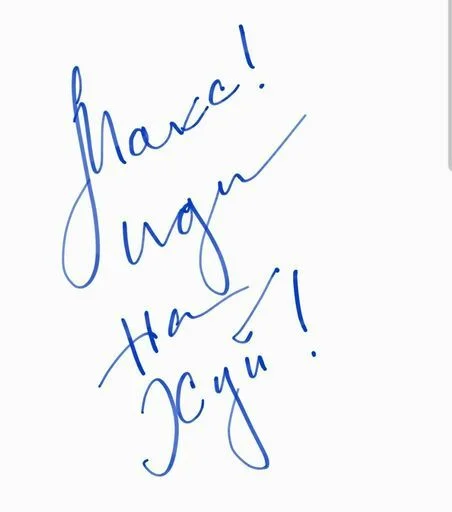 Макс!
иди
на
хуй!